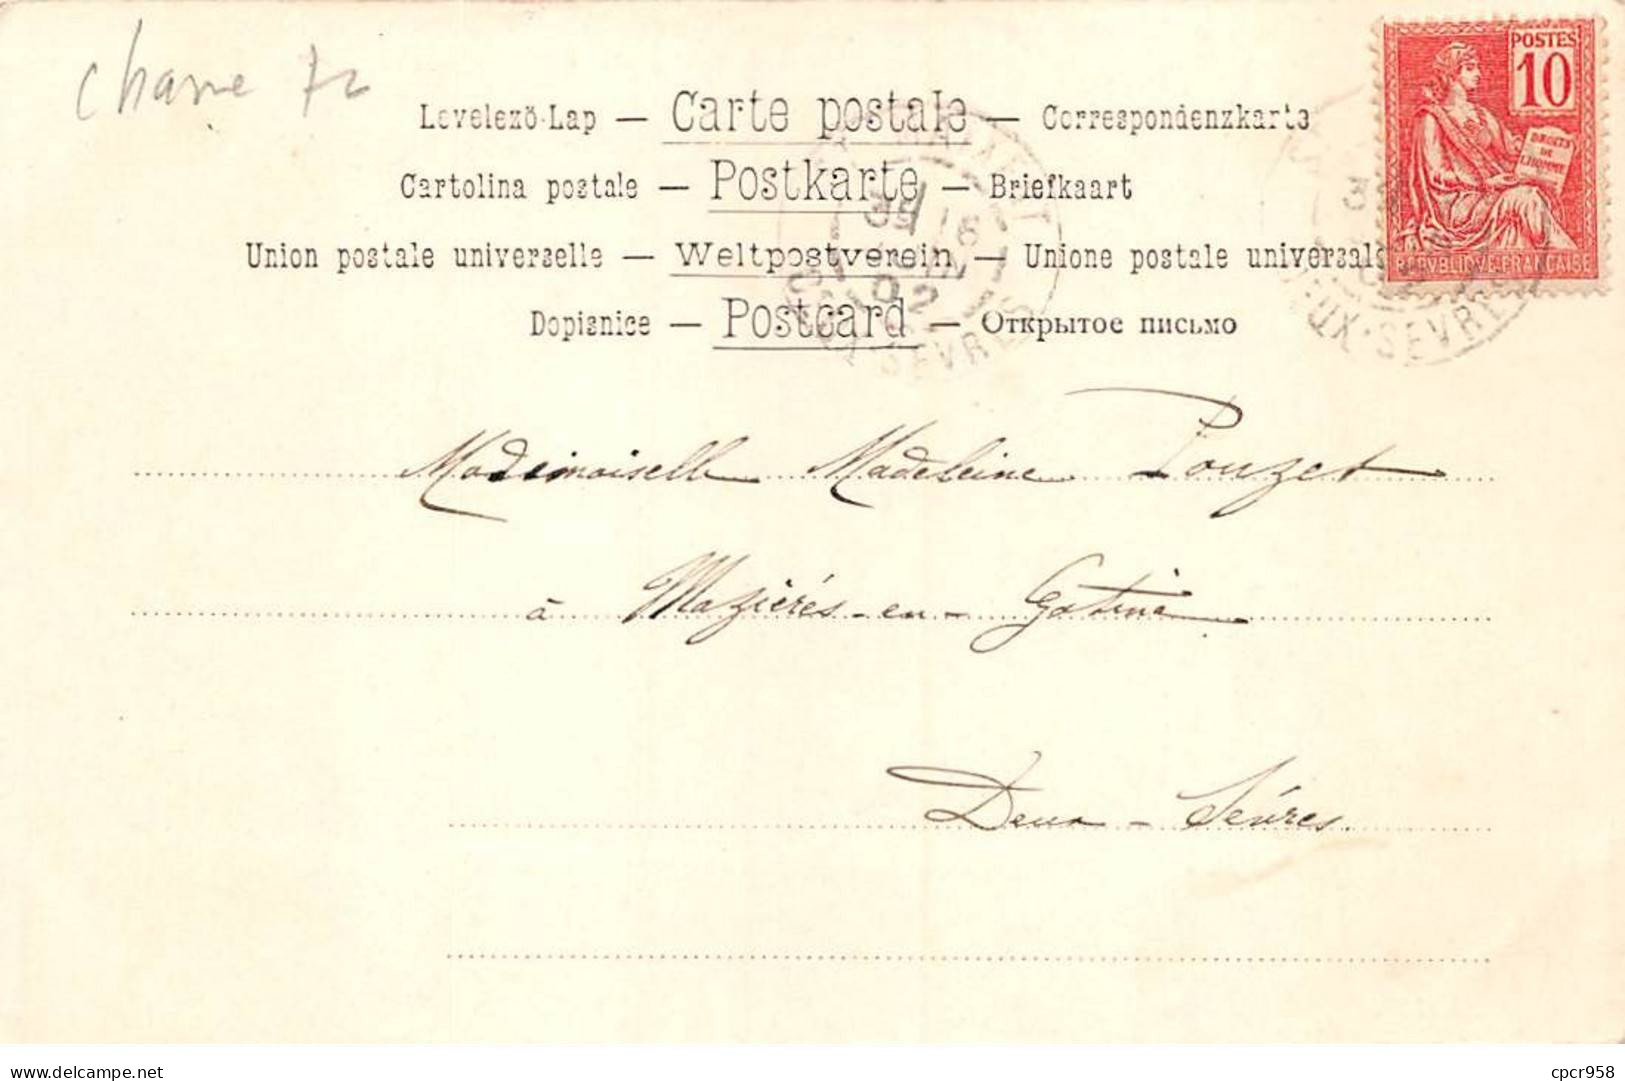 Levelező-Lap — Carte postale — Correspondenzkarte
Cartolina postale — Postkarte — Briefkaart
Union postale universelle — Weltpostverein — Unione postale universale
Dopisnice — Postcard — Открытое письмо
POSTES
10
DROITS
DE
L'HOMME
REPVBLIQVE FRANCAISE
16
02
SEVRES
UX-SEVRE
Mademoiselle Madeleine Pouzet
à Mazières-en-Gatine
Deux-Sévres
cpcr958